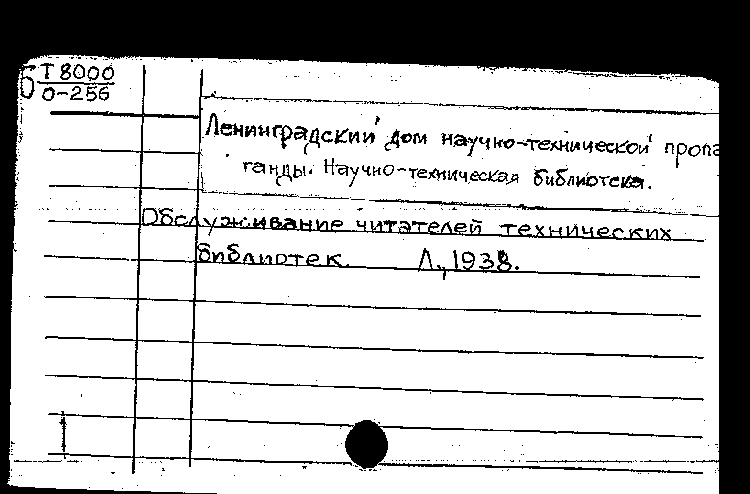 Б Т 8000
О-256
Ленинградский дом научно-технической пропа
ганды. Научно-техническая библиотека.
Обслуживание читателей технических
библиотек. Л., 1938.